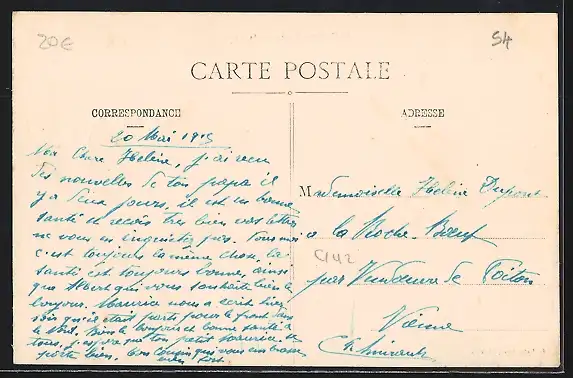 20€
S4
CARTE POSTALE
CORRESPONDANCE
ADRESSE
20 Mai 1915
Ma Chère Hélène, j'ai reçu
des nouvelles de ton papa il
y a deux jours, il est en bonne
santé et reçois très bien vos lettres
ne vous en inquiétez pas. Tous nous
c'est toujours la même chose, la
santé est toujours bonne, ainsi
que Albert qui vous souhaite bien le
bonjour. Maurice nous a écrit hier
soir qu'il était parti pour le front dans
le Nord. Bien le bonjour et bonne santé à
tous, j'espère que ton petit se
porte bien. Ton cousin qui vous embrasse
bien fort.
Mademoiselle Hélène Dupont
à la Roche-Bœuf
C142
par Vendeuvre de Poitou
Vienne